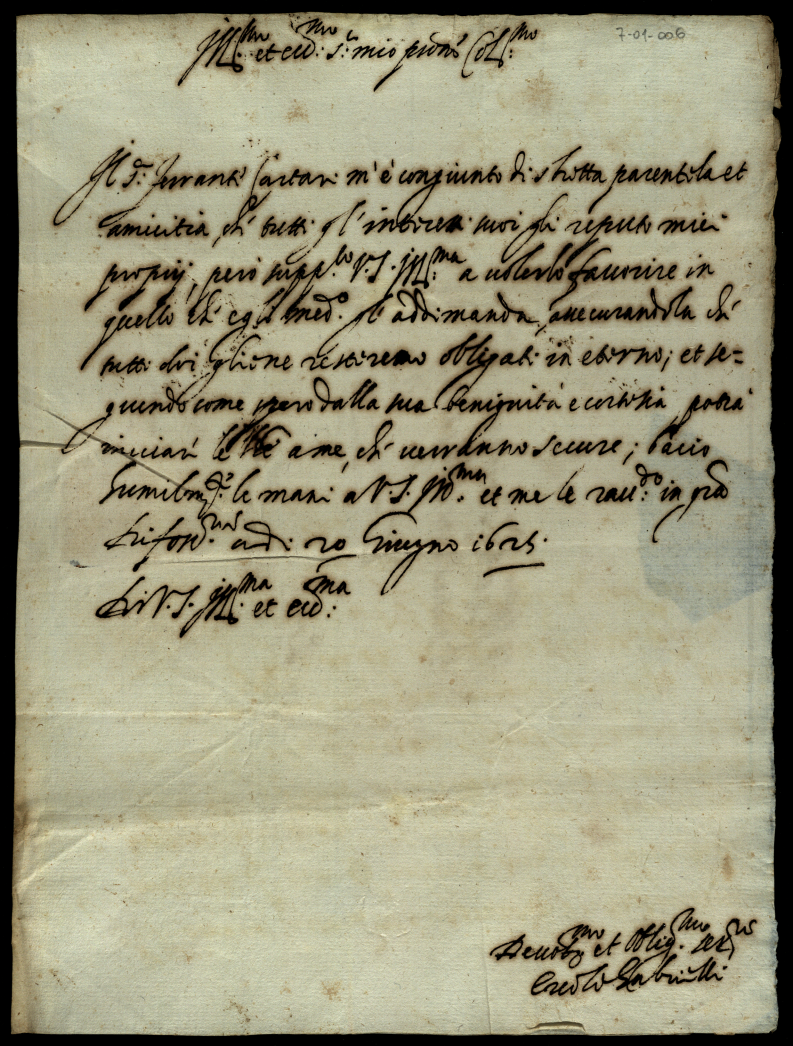 7-01-006
Ill:mo et ecc:mo s:r mio prone Col:mo
Il s:r Ferrante Cartari m'è congiunto di stretta parentela et
amicitia, che tutti gl'interessi suoi gli reputo miei
proprij, però supp.co V.S. Ill:ma a volerlo favorire in
quello ch'egli med.o gl'addimanda, assecurandola che
tutti doi gliene resteremo obligati in eterno; et se=
guendo come spero dalla sua benignità e cortesia, potrà
inviar le a me, che verranno secure; bacio
humilm. le mani a V.S. Ill.ma et me le racc:do in gra
Di adi 20 Giugno 1625.
Di V.S. Ill:ma et ecc:ma
Devot.mo et oblig.mo
Gabrielli